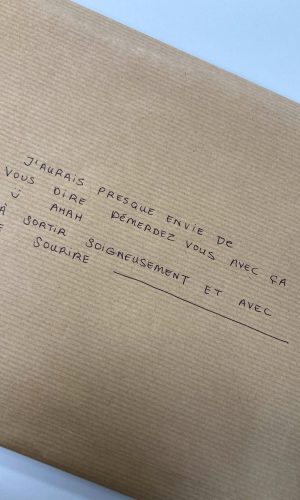 J'AURAIS PRESQUE ENVIE DE
VOUS DIRE DÉMERDEZ VOUS AVEC ÇA
Ü AHAH
À SORTIR SOIGNEUSEMENT ET AVEC
E SOURIRE